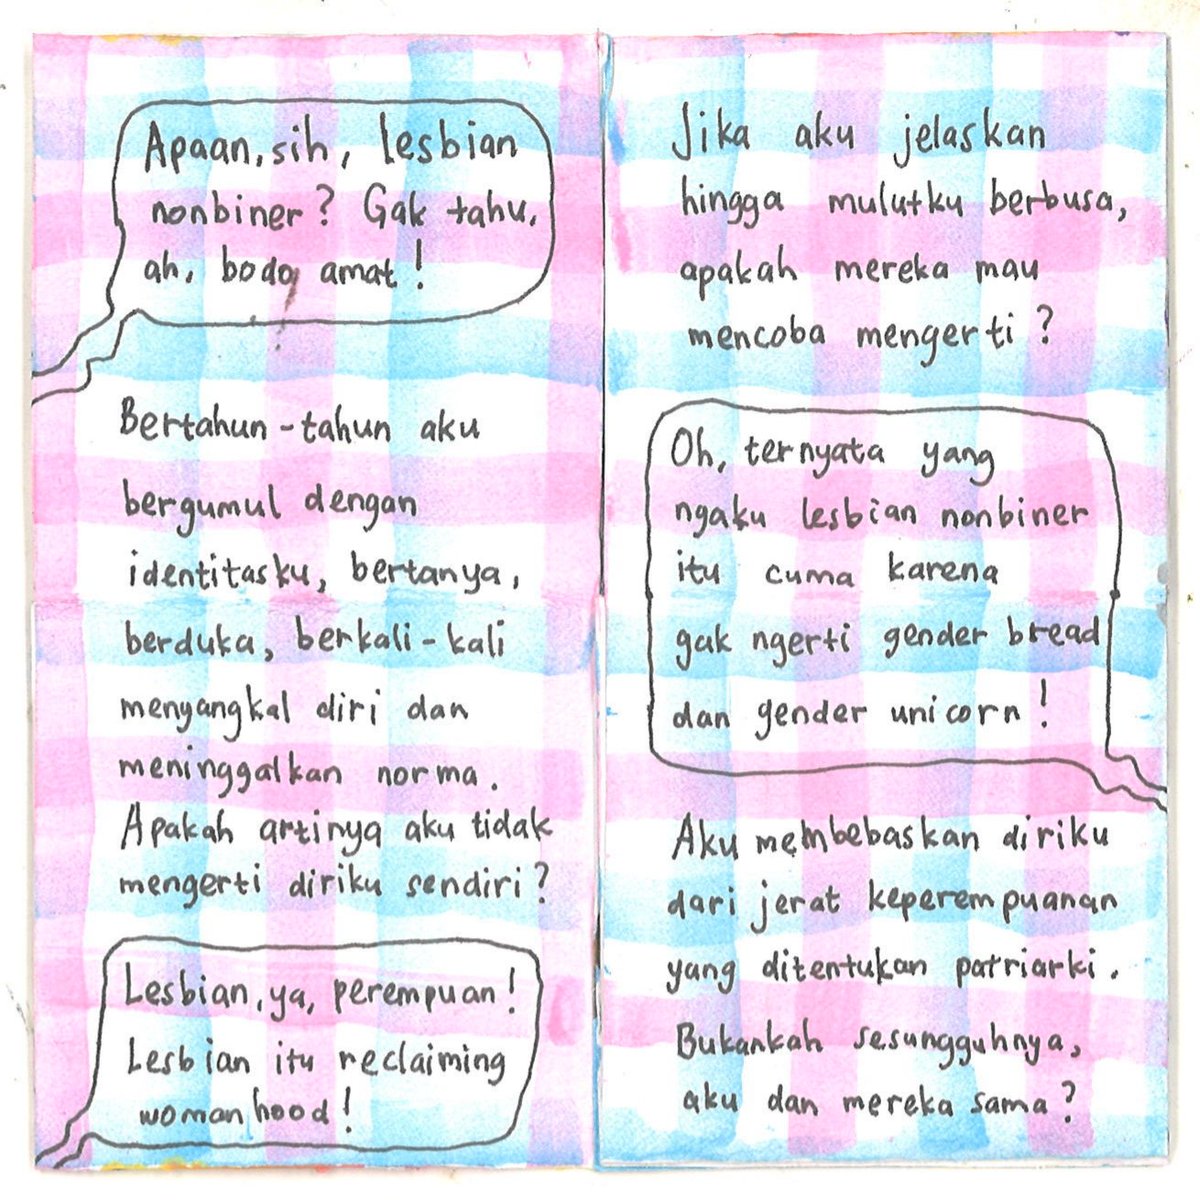 Apaan, sih, lesbian
nonbiner? Gak tahu,
ah, bodo amat!
Bertahun-tahun aku
bergumul dengan
identitasku, bertanya,
berduka, berkali-kali
menyangkal diri dan
meninggalkan norma.
Apakah artinya aku tidak
mengerti diriku sendiri?
Lesbian, ya, perempuan!
Lesbian itu reclaiming
womanhood!
Jika aku jelaskan
hingga mulutku berbusa,
apakah mereka mau
mencoba mengerti?
Oh, ternyata yang
ngaku lesbian nonbiner
itu cuma karena
gak ngerti gender bread
dan gender unicorn!
Aku membebaskan diriku
dari jerat keperempuanan
yang ditentukan patriarki.
Bukankah sesungguhnya,
aku dan mereka sama?